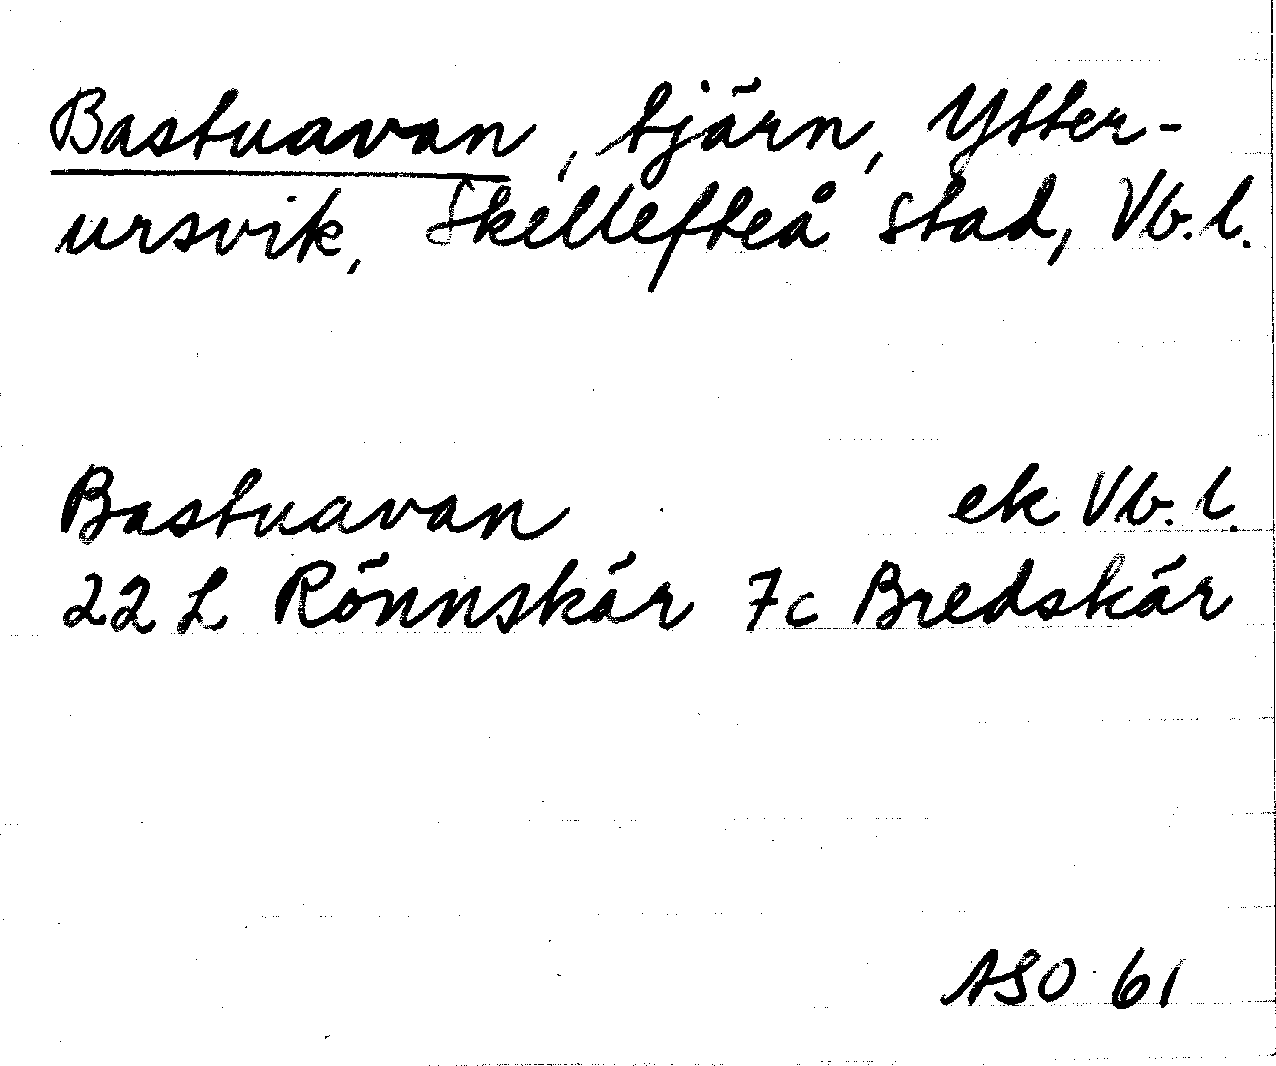 Bastuavan, tjärn, Ytter-
ursvik, Skellefteå stad, Vb. l.
Bastuavan ek Vb. l.
22 L Rönnskär 7c Bredskär
ASO 61